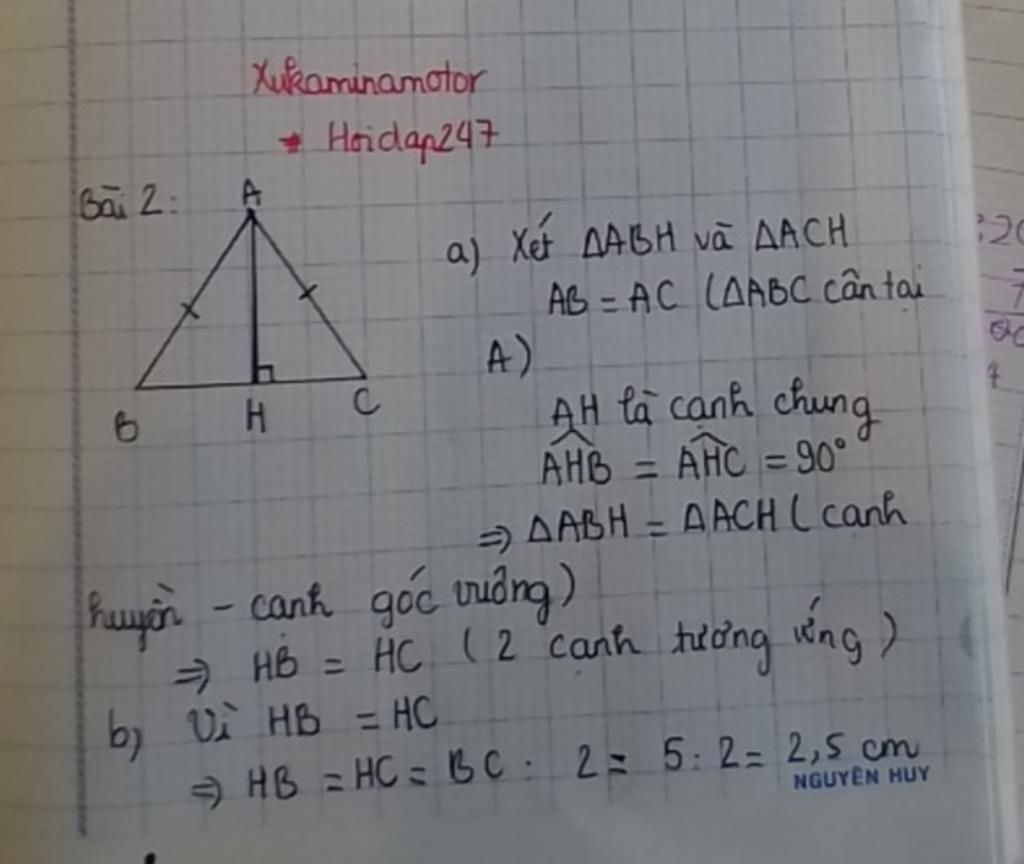 Xukaminamotor
→ Hoidap247
Bài 2:
A
B
H
C
a) Xét ΔABH và ΔACH
AB = AC (ΔABC cân tại
A)
AH là cạnh chung
AHB = AHC = 90°
⇒ ΔABH = ΔACH ( cạnh
huyền - cạnh góc vuông)
⇒ HB = HC ( 2 cạnh tương ứng )
b) Vì HB = HC
⇒ HB = HC = BC : 2 = 5 : 2 = 2,5 cm
NGUYÊN HUY